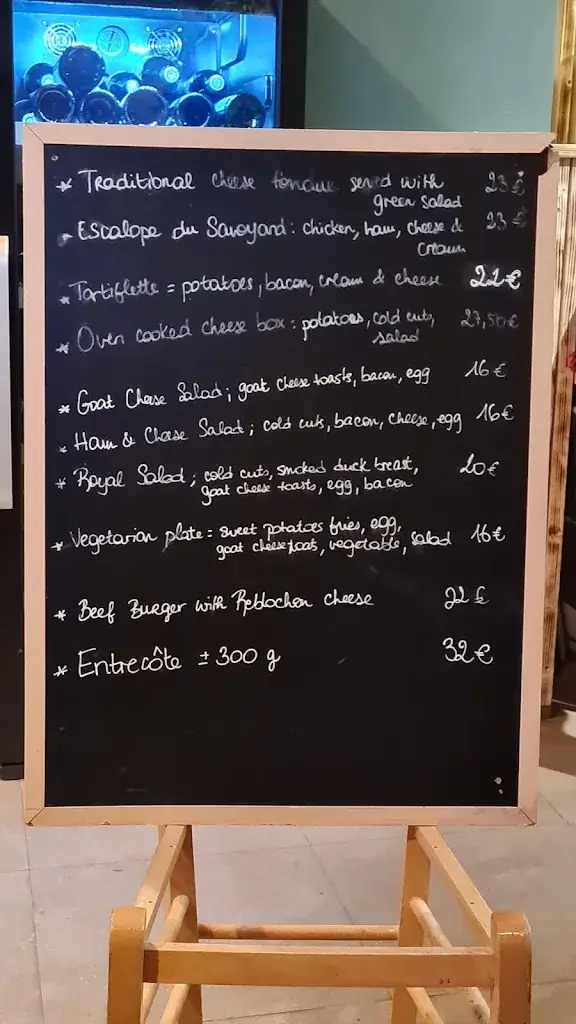 * Traditional cheese fondue served with 23 €
green salad
* Escalope du Savoyard : chicken, ham, cheese & 23 €
cream
* Tartiflette = potatoes, bacon, cream & cheese 22 €
* Oven cooked cheese box : potatoes, cold cuts, 27,50 €
salad
* Goat Cheese Salad ; goat cheese toasts, bacon, egg 16 €
* Ham & Cheese Salad ; cold cuts, bacon, cheese, egg 16 €
* Royal Salad ; cold cuts, smoked duck breast, 20 €
goat cheese toasts, egg, bacon
* Vegetarian plate = sweet potatoes fries, egg, 16 €
goat cheese toast, vegetable, salad
* Beef Burger with Reblochon cheese 22 €
* Entrecôte ± 300 g 32 €